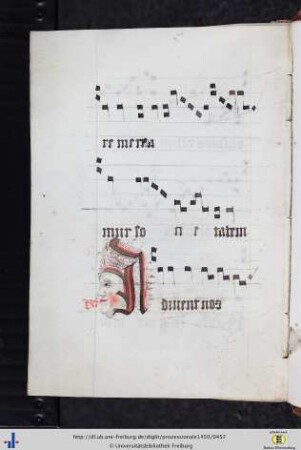 re merea
mur so ci e tatem
A diuvent nos
http://dl.ub.uni-freiburg.de/diglit/prozessionale1450/0452
© Universitätsbibliothek Freiburg